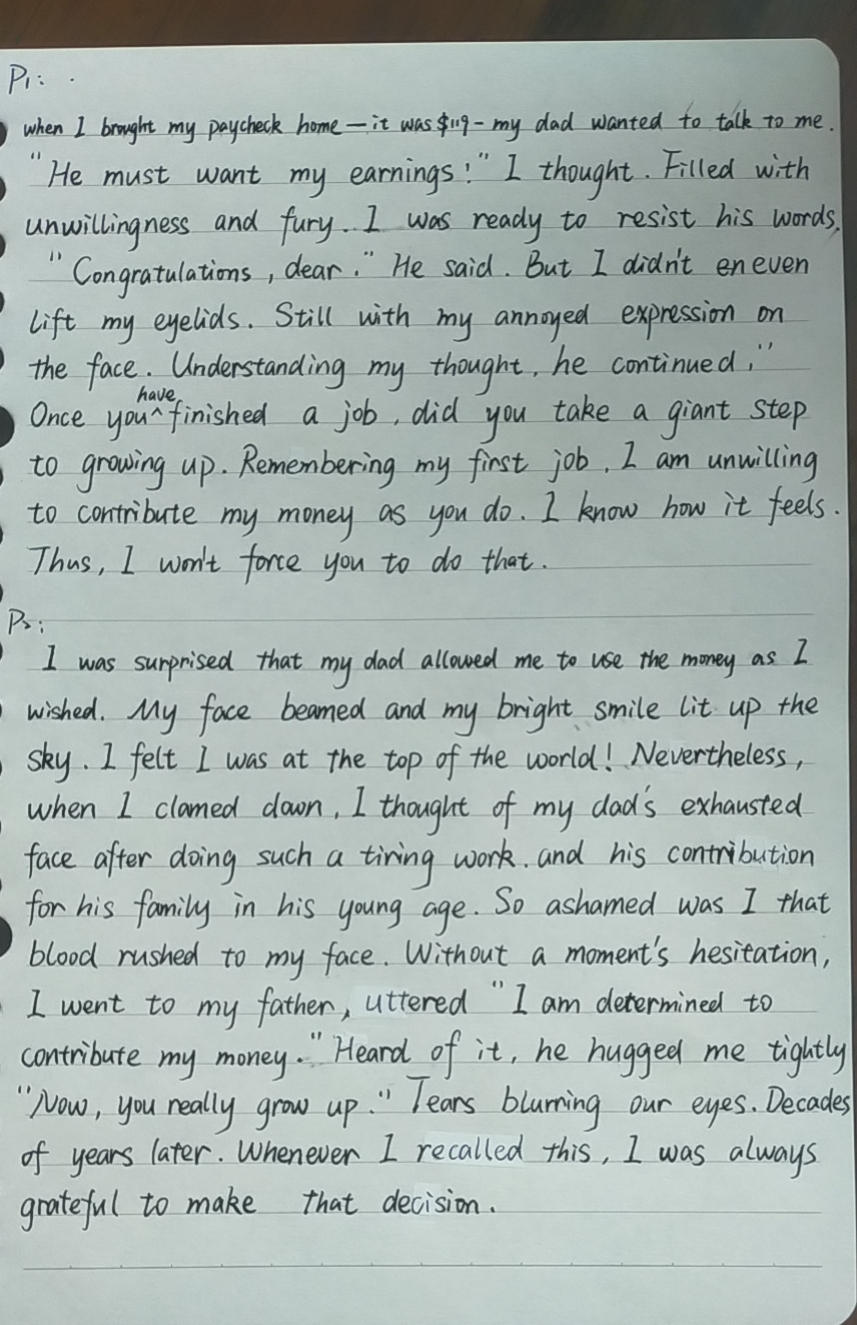 P1:
when I brought my paycheck home — it was $119 - my dad wanted to talk to me.
"He must want my earnings!" I thought. Filled with
unwillingness and fury. I was ready to resist his words.
"Congratulations, dear." He said. But I didn't en even
lift my eyelids. Still with my annoyed expression on
the face. Understanding my thought, he continued,"
Once you have finished a job, did you take a giant step
to growing up. Remembering my first job, I am unwilling
to contribute my money as you do. I know how it feels.
Thus, I won't force you to do that.
P2:
I was surprised that my dad allowed me to use the money as I
wished. My face beamed and my bright smile lit up the
sky. I felt I was at the top of the world! Nevertheless,
when I clamed down, I thought of my dad's exhausted
face after doing such a tiring work. and his contribution
for his family in his young age. So ashamed was I that
blood rushed to my face. Without a moment's hesitation,
I went to my father, uttered "I am determined to
contribute my money." Heard of it, he hugged me tightly
"Now, you really grow up." Tears blurring our eyes. Decades
of years later. Whenever I recalled this, I was always
grateful to make that decision.